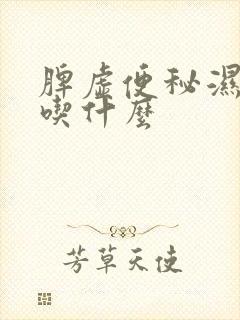 脾虛便秘濕
喫什麼
芳草天使